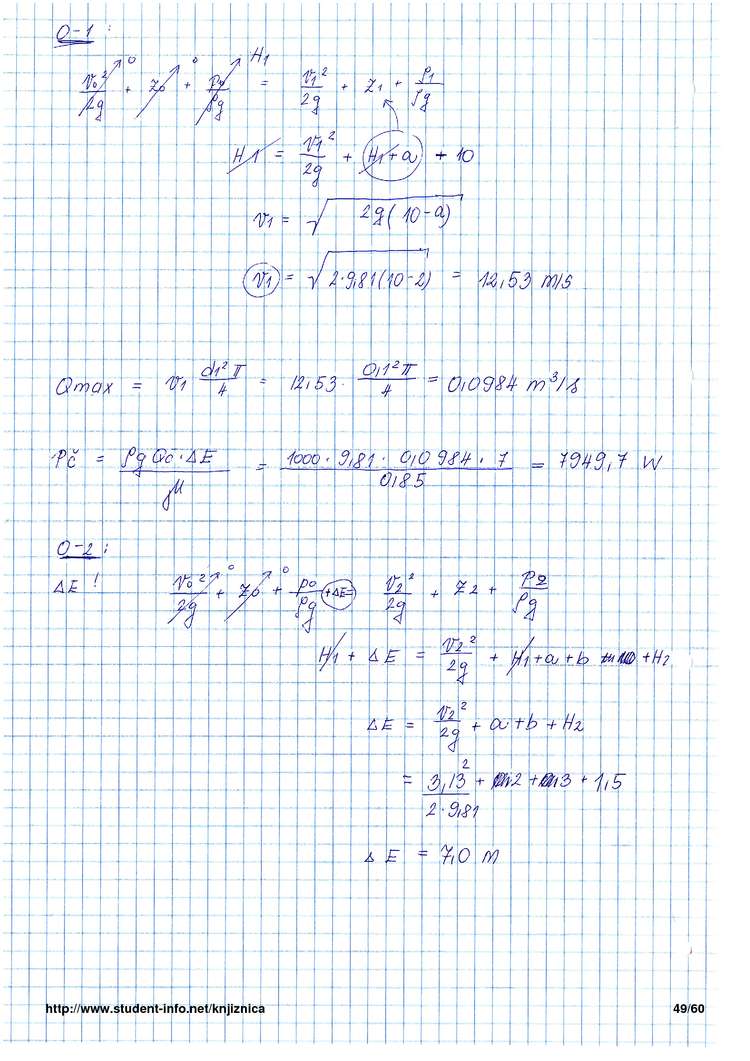 0-1 :
v₀²/2g + z₀ + p₀/ρg = v₁²/2g + z₁ + p₁/ρg
0 0 H₁
H1 = v₁²/2g + H₁+a + 10
v₁ = √2g(10-a)
v₁ = √2·9,81(10-2) = 12,53 m/s
Qmax = v₁ d₁²π/4 = 12,53 · 0,1²π/4 = 0,0984 m³/s
Pč = ρgQc·ΔE/μ = 1000·9,81·0,0984·7/0,85 = 7949,7 W
0-2 :
ΔE ! v₀²/2g + z₀ + p₀/ρg +ΔE= v₂²/2g + z₂ + p₂/ρg
0 0
H1 + ΔE = v₂²/2g + H₁+a+b +H₂
ΔE = v₂²/2g + a+b+H₂
= 3,13²/2·9,81 + 2+3+1,5
ΔE = 7,0 m
http://www.student-info.net/knjiznica 49/60